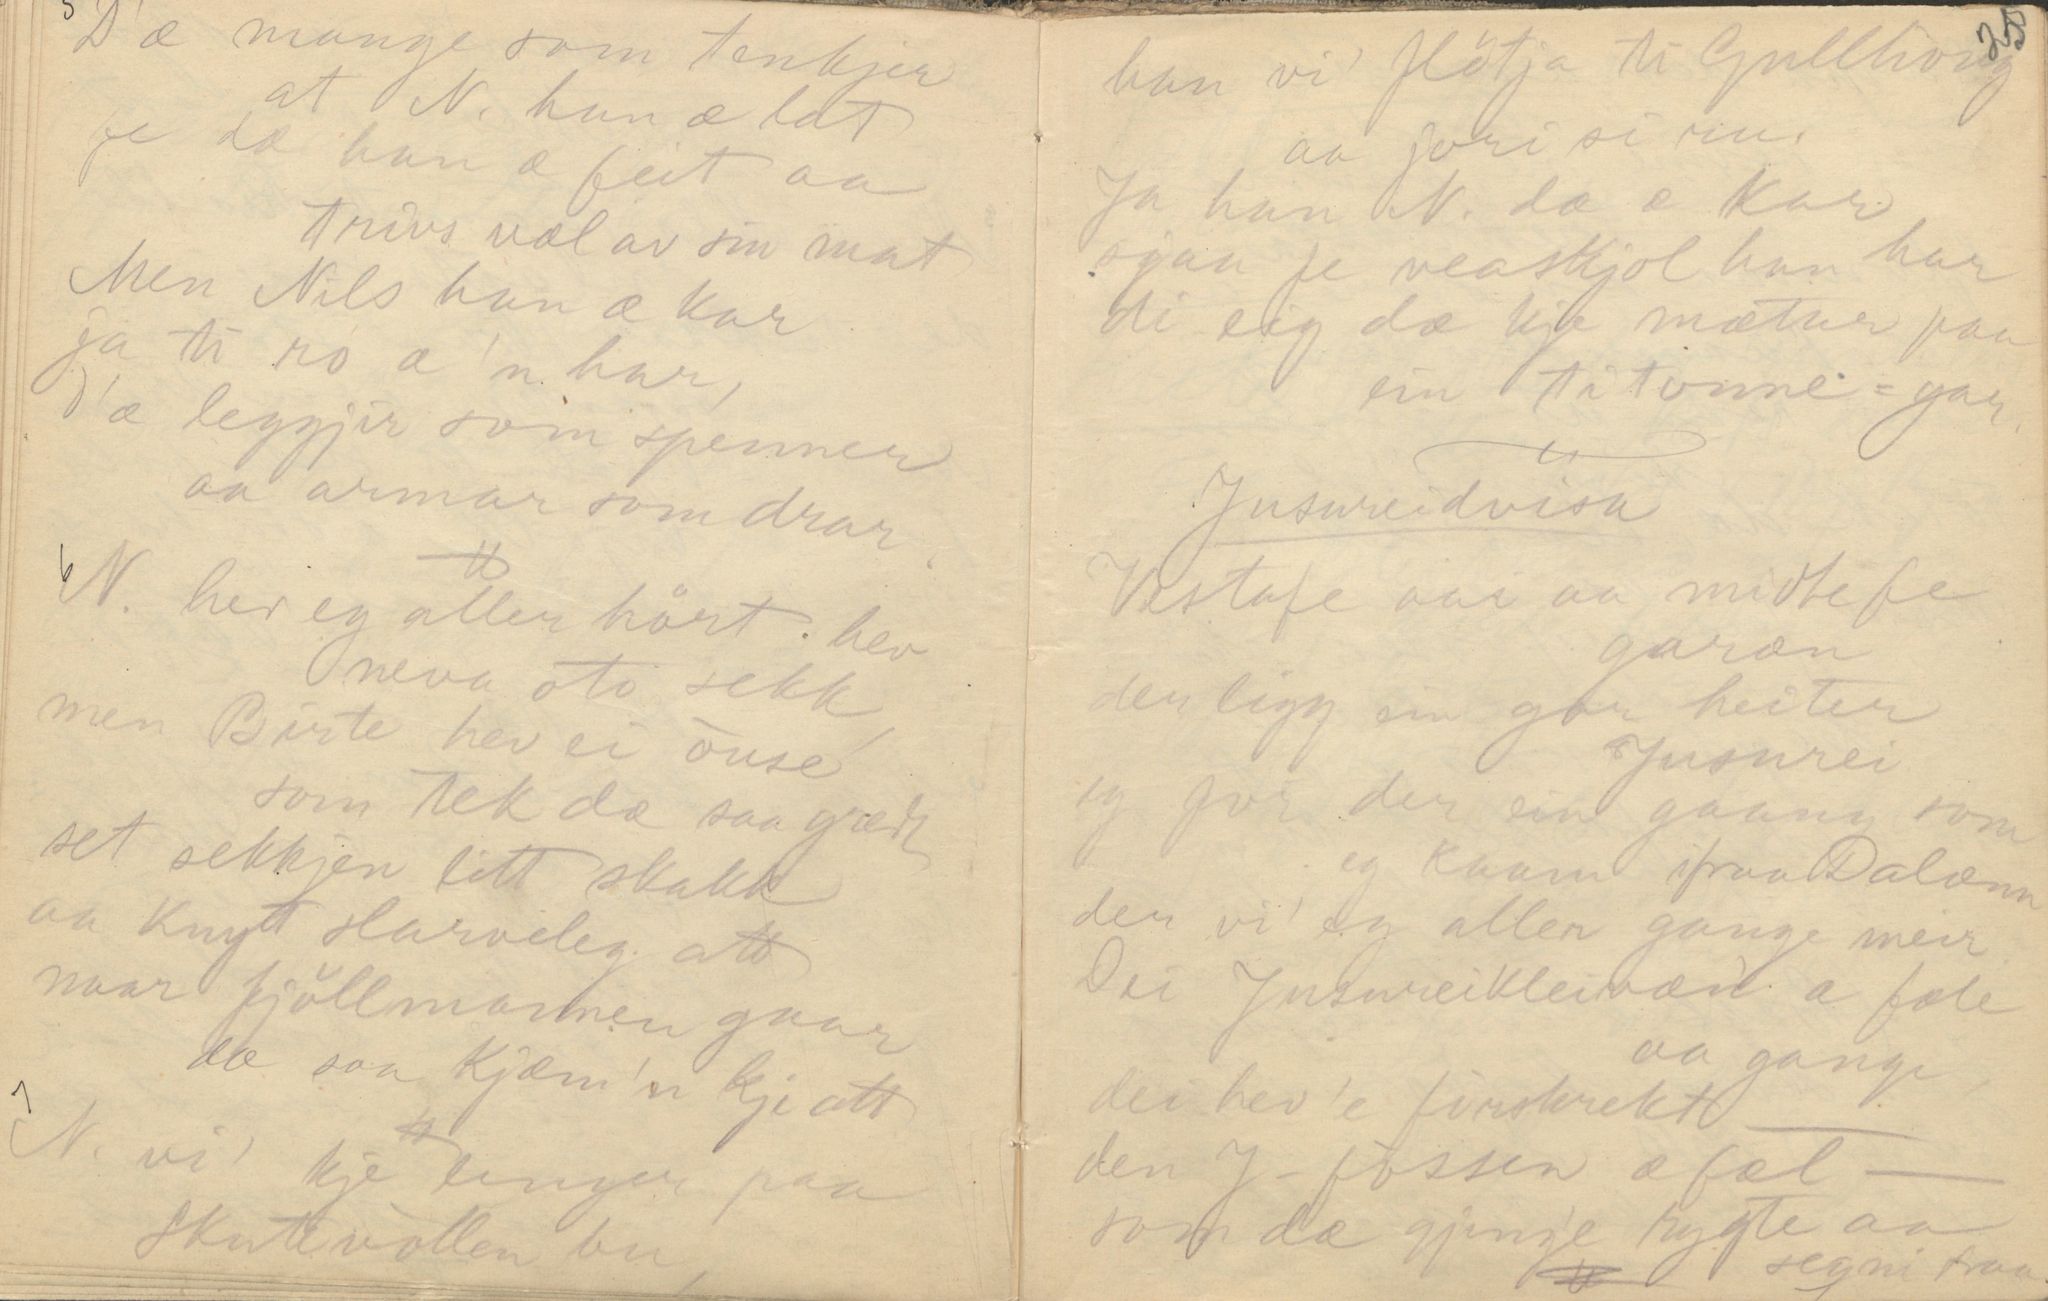 5
D'æ mange som tenkjer
at N. han æ lat
fe dæ han æ feit aa
trivs væl av sin mat
Men Nils han æ kar
ja ti ro æ'n har,
D'æ leggjir som spenner
aa armar som drar.
6 N. hev eg aller hört. hev
neva oto sekk,
men Birte hev ei öuse
som tek dæ saa
set sekkjen litt skakk
aa knyt slarveleg att
naar fjöllmannen gaar
dæ saa kjæm'n kje att
7
N. vi' kje lenger paa
Skutevöllen bu,
25
han vi' flötja ti Gullhovig
aa fori si ru.
Ja han N. dæ æ kar
sjaa fe veaskjol han har
di eig dæ kje mætar paa
ein titonne-gar.
Jusureidvisa
Vestafe aai aa midtefe
garæn
der ligg ein gar heiter
Jusurei
eg for der ein gaang som
eg kaam ifraa Dalænn
der vi' eg aller gange meir
Dei Jusureikleivæn æ fæle
aa gange
dei hev'e förskrekt
den J-fossen æ fæl
som dæ gjenje rygte aa
segni fraa.